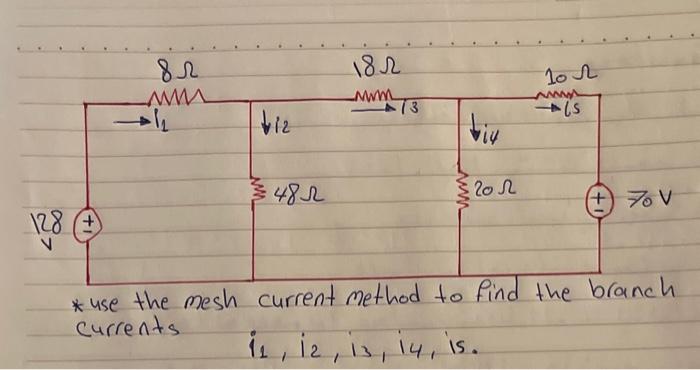 8Ω 18Ω 10Ω
i1 i2 i3 i4 i5
48Ω 20Ω
128 V + - + - 70 V
* use the mesh current method to find the branch
currents
i1, i2, i3, i4, is.